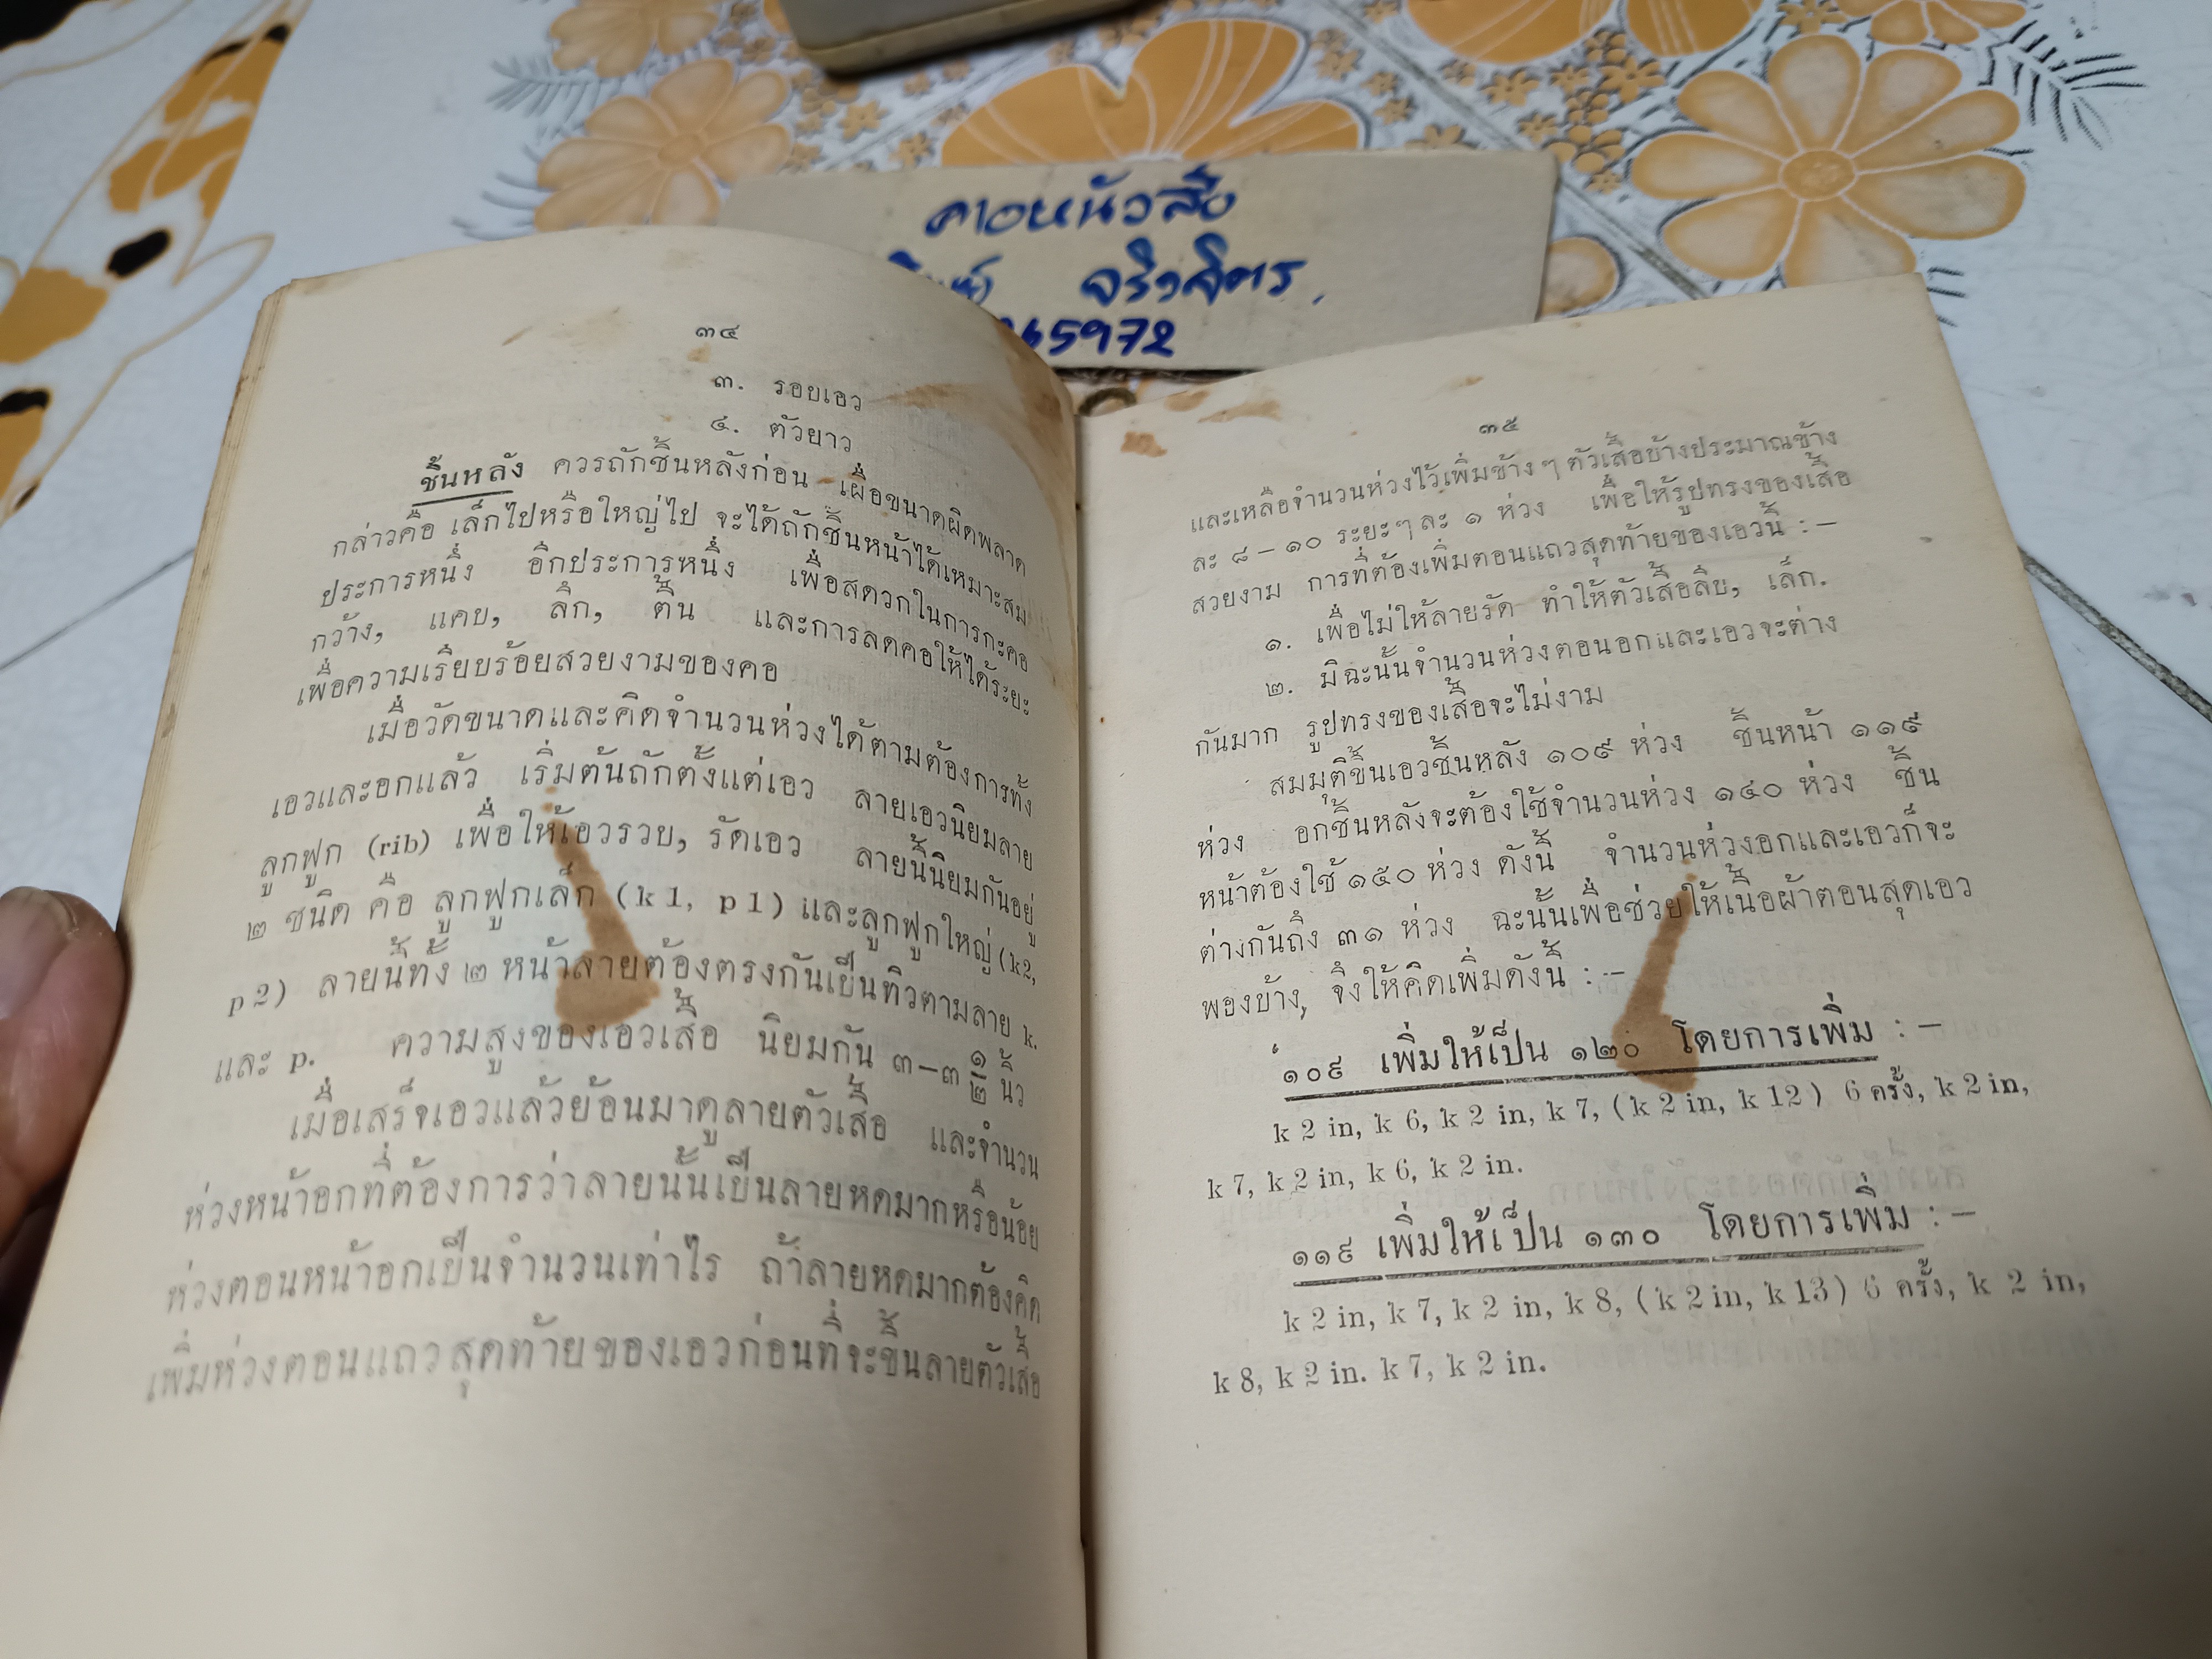 ดาวหนังสือ
จริงจิตร.
65972
๓๔
๓. รอบเอว
๔. ตัวยาว
ชิ้นหลัง ควรถักชิ้นหลังก่อน เผื่อขนาดผิดพลาด
กล่าวคือ เล็กไปหรือใหญ่ไป จะได้ถักชิ้นหน้าได้เหมาะสม
ประการหนึ่ง อีกประการหนึ่ง เพื่อสดวกในการกะคอ
กว้าง, แคบ, ลึก, ตื้น และการลดคอให้ได้ระยะ
เพื่อความเรียบร้อยสวยงามของคอ
เมื่อวัดขนาดและคิดจำนวนห่วงได้ตามต้องการทั้ง
เอวและอกแล้ว เริ่มต้นถักตั้งแต่เอว ลายเอวนิยมลาย
ลูกฟูก (rib) เพื่อให้เอวรวบ, รัดเอว ลายนี้นิยมกันอยู่
๒ ชนิด คือ ลูกฟูกเล็ก (k 1, p 1) และลูกฟูกใหญ่ (k 2,
p 2) ลายนี้ทั้ง ๒ หน้าลายต้องตรงกันเป็นทิวตามลาย k.
และ p. ความสูงของเอวเสื้อ นิยมกัน ๓—๓ ๑/๒ นิ้ว
เมื่อเสร็จเอวแล้วย้อนมาดูลายตัวเสื้อ และจำนวน
ห่วงหน้าอกที่ต้องการว่าลายนั้นเป็นลายหดมากหรือน้อย
ห่วงตอนหน้าอกเป็นจำนวนเท่าไร ถ้าลายหดมากต้องคิด
เพิ่มห่วงตอนแถวสุดท้ายของเอวก่อนที่จะขึ้นลายตัวเสื้อ
๓๕
และเหลือจำนวนห่วงไว้เพิ่มข้าง ๆ ตัวเสื้อบ้างประมาณข้าง
ละ ๘ – ๑๐ ระยะๆ ละ ๑ ห่วง เพื่อให้รูปทรงของเสื้อ
สวยงาม การที่ต้องเพิ่มตอนแถวสุดท้ายของเอวนี้ : —
๑. เพื่อไม่ให้ลายรัด ทำให้ตัวเสื้อลีบ, เล็ก.
๒. มิฉะนั้นจำนวนห่วงตอนอกและเอวจะต่าง
กันมาก รูปทรงของเสื้อจะไม่งาม
สมมุติขึ้นเอวชิ้นหลัง ๑๐๙ ห่วง ชิ้นหน้า ๑๑๙
ห่วง อกชิ้นหลังจะต้องใช้จำนวนห่วง ๑๔๐ ห่วง ชิ้น
หน้าต้องใช้ ๑๕๐ ห่วง ดังนี้ จำนวนห่วงอกและเอวก็จะ
ต่างกันถึง ๓๑ ห่วง ฉะนั้นเพื่อช่วยให้เนื้อผ้าตอนสุดเอว
พองบ้าง, จึงให้คิดเพิ่มดังนี้ : —
๑๐๙ เพิ่มให้เป็น ๑๒๐ โดยการเพิ่ม : —
k 2 in, k 6, k 2 in, k 7, ( k 2 in, k 12 ) 6 ครั้ง, k 2 in,
k 7, k 2 in, k 6, k 2 in.
๑๑๙ เพิ่มให้เป็น ๑๓๐ โดยการเพิ่ม : —
k 2 in, k 7, k 2 in, k 8, ( k 2 in, k 13 ) 6 ครั้ง, k 2 in,
k 8, k 2 in. k 7, k 2 in.